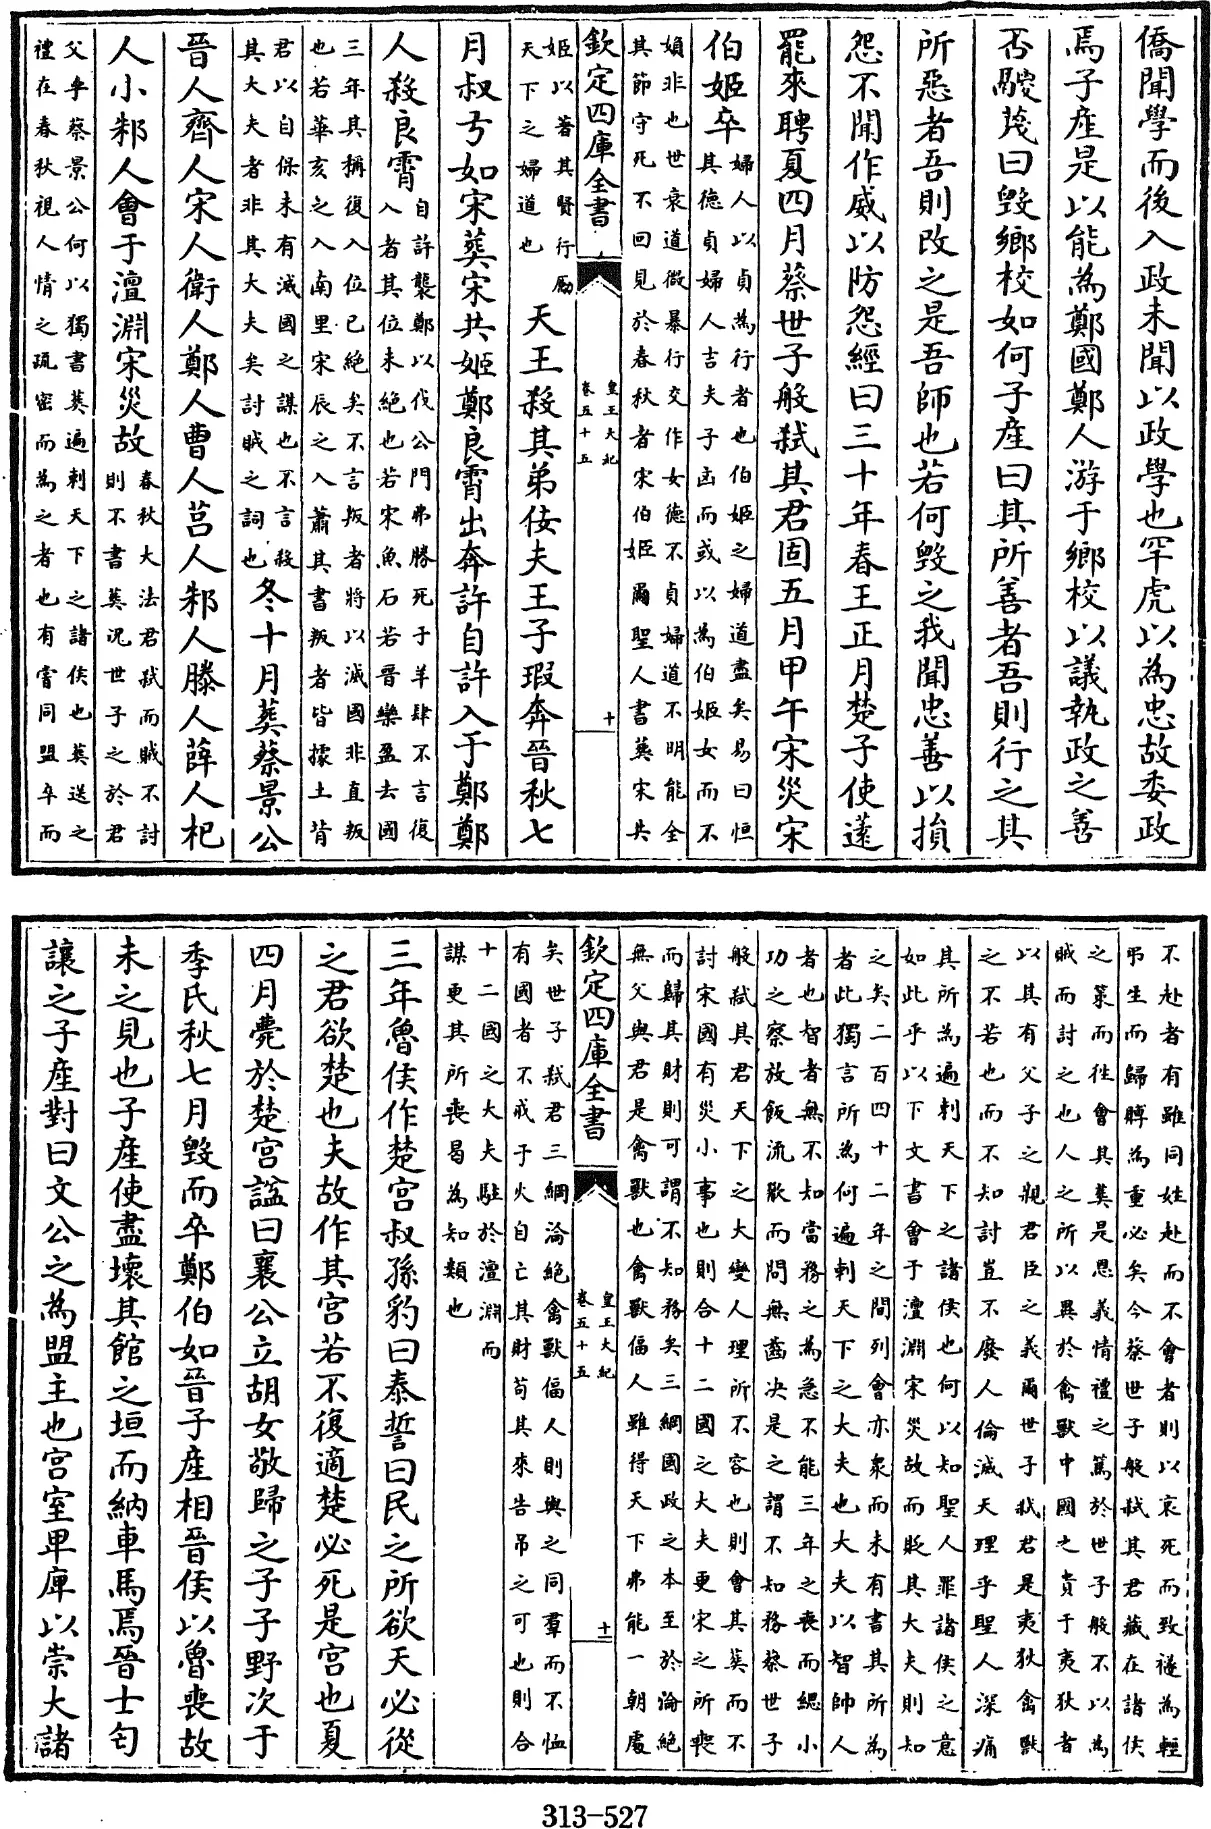 僑聞學而後入政未聞以政學也罕虎以為忠故委政
焉子産是以能為鄭國鄭人游于鄉校以議執政之善
否鬷蔑曰毀鄉校如何子産曰其所善者吾則行之其
所惡者吾則改之是吾師也若何毀之我聞忠善以損
怨不聞作威以防怨經曰三十年春王正月楚子使薳
罷來聘夏四月蔡世子般弒其君固五月甲午宋災宋
伯姬卒婦人以貞為行者也伯姬之婦道盡矣易曰恒
其德貞婦人吉夫子凶而或以為伯姬女而不
婦非也世衰道微暴行交作女德不貞婦道不明能全
其節守死不回見於春秋者宋伯姬爾聖人書葬宋共
欽定四庫全書
皇王大紀
卷五十五
十
姬以著其賢行勵
天下之婦道也
天王殺其弟佞夫王子瑕奔晉秋七
月叔弓如宋葬宋共姬鄭良霄出奔許自許入于鄭鄭
人殺良霄自許襲鄭以伐公門弗勝死于羊肆不言復
入者其位未絶也若宋魚石若晉欒盈去國
三年其稱復入位已絶矣不言叛者將以滅國非直叛
也若華亥之入南里宋辰之入蕭其書叛者皆據土背
君以自保未有滅國之謀也不言殺
其大夫者非其大夫矣討賊之詞也
冬十月葬蔡景公
晉人齊人宋人衛人鄭人曹人莒人邾人滕人薛人杞
人小邾人會于澶淵宋災故春秋大法君弒而賊不討
則不書葬况世子之於君
父乎蔡景公何以獨書葬遍刺天下之諸侯也葬送之
禮在春秋視人情之疏密而為之者也有嘗同盟卒而
不赴者有雖同姓赴而不會者則以哀死而致襚為輕
弔生而歸賵為重必矣今蔡世子般弒其君藏在諸侯
之策而徃會其葬是恩義情禮之篤於世子般不以為
賊而討之也人之所以異於禽獸中國之貴于夷狄者
以其有父子之親君臣之義爾世子弒君是夷狄禽獸
之不若也而不知討豈不廢人倫滅天理乎聖人深痛
其所為遍刺天下之諸侯也何以知聖人罪諸侯之意
如此乎以下文書會于澶淵宋災故而貶其大夫則知
之矣二百四十二年之間列會亦衆而未有書其所為
者此獨言所為何遍刺天下之大夫也大夫以智帥人
者也智者無不知當務之為急不能三年之喪而緦小
功之察放飯流歠而問無齒决是之謂不知務蔡世子
般弒其君天下之大變人理所不容也則會其葬而不
討宋國有災小事也則合十二國之大夫更宋之所喪
而歸其財則可謂不知務矣三綱國政之本至於淪絶
無父與君是禽獸也禽獸偪人雖得天下弗能一朝處
欽定四庫全書
皇王大紀
卷五十五
十一
矣世子弒君三綱淪絶禽獸偪人則與之同羣而不恤
有國者不戒于火自亡其財苟其來告吊之可也則合
十二國之大夫駐於澶淵而
謀更其所喪曷為知類也
三年魯侯作楚宫叔孫豹曰泰誓曰民之所欲天必從
之君欲楚也夫故作其宫若不復適楚必死是宫也夏
四月薨於楚宫諡曰襄公立胡女敬歸之子子野次于
季氏秋七月毀而卒鄭伯如晉子産相晉侯以魯喪故
未之見也子産使盡壞其館之垣而納車馬焉晉士匄
讓之子産對曰文公之為盟主也宫室卑庳以崇大諸
313-527